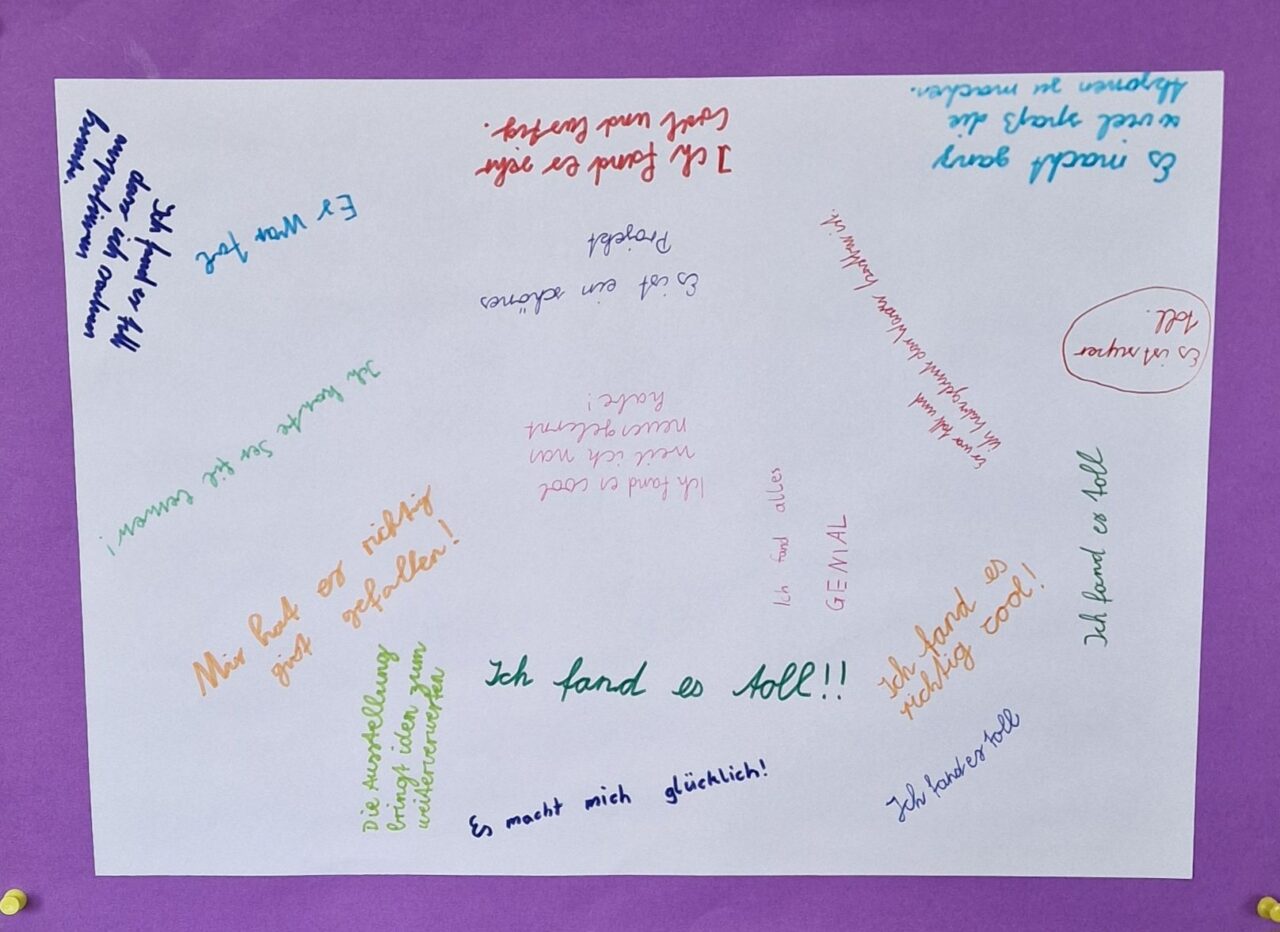 Ich fand es toll
dass ich
Es war toll
Ich fand es sehr
cool und lustig.
Es ist ein schönes
Projekt
Es macht ganz
viel spaß die
zu machen.
Es ist super
toll.
Es war toll und
ich habe gelernt
Ich konnte ser fil lernen!
Ich fand es cool
weil ich was
neues gelernt
habe!
Ich fand alles
GENIAL
Ich fand es toll
Mir hat es richtig
gefallen!
Ich fand es toll!!
Ich fand es
richtig cool!
Die Ausstellung
bringt iden zum
weiterverwerten
Es macht mich glücklich!
Ich fand es toll